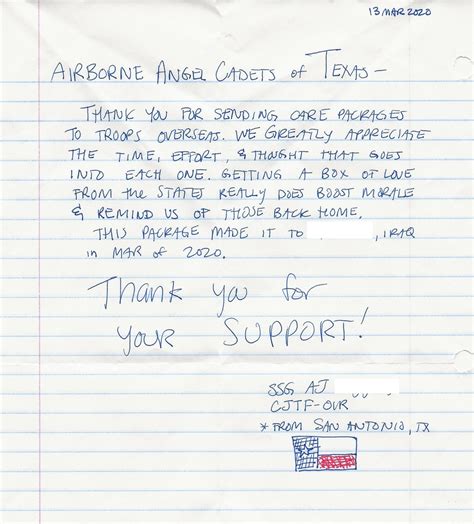 13 MAR 2020
AIRBORNE ANGEL CADETS of TEXAS —
THANK YOU FOR SENDING CARE PACKAGES
TO TROOPS OVERSEAS. WE GREATLY APPRECIATE
THE TIME, EFFORT, & THOUGHT THAT GOES
INTO EACH ONE. GETTING A BOX OF LOVE
FROM the STATES REALLY DOES BOOST MORALE
& REMIND US OF THOSE BACK HOME.
THIS PACKAGE MADE IT TO , IRAQ
in MAR of 2020.
Thank you for
your SUPPORT!
SSG AJ
CJTF-OIR
* FROM SAN ANTONIO, TX